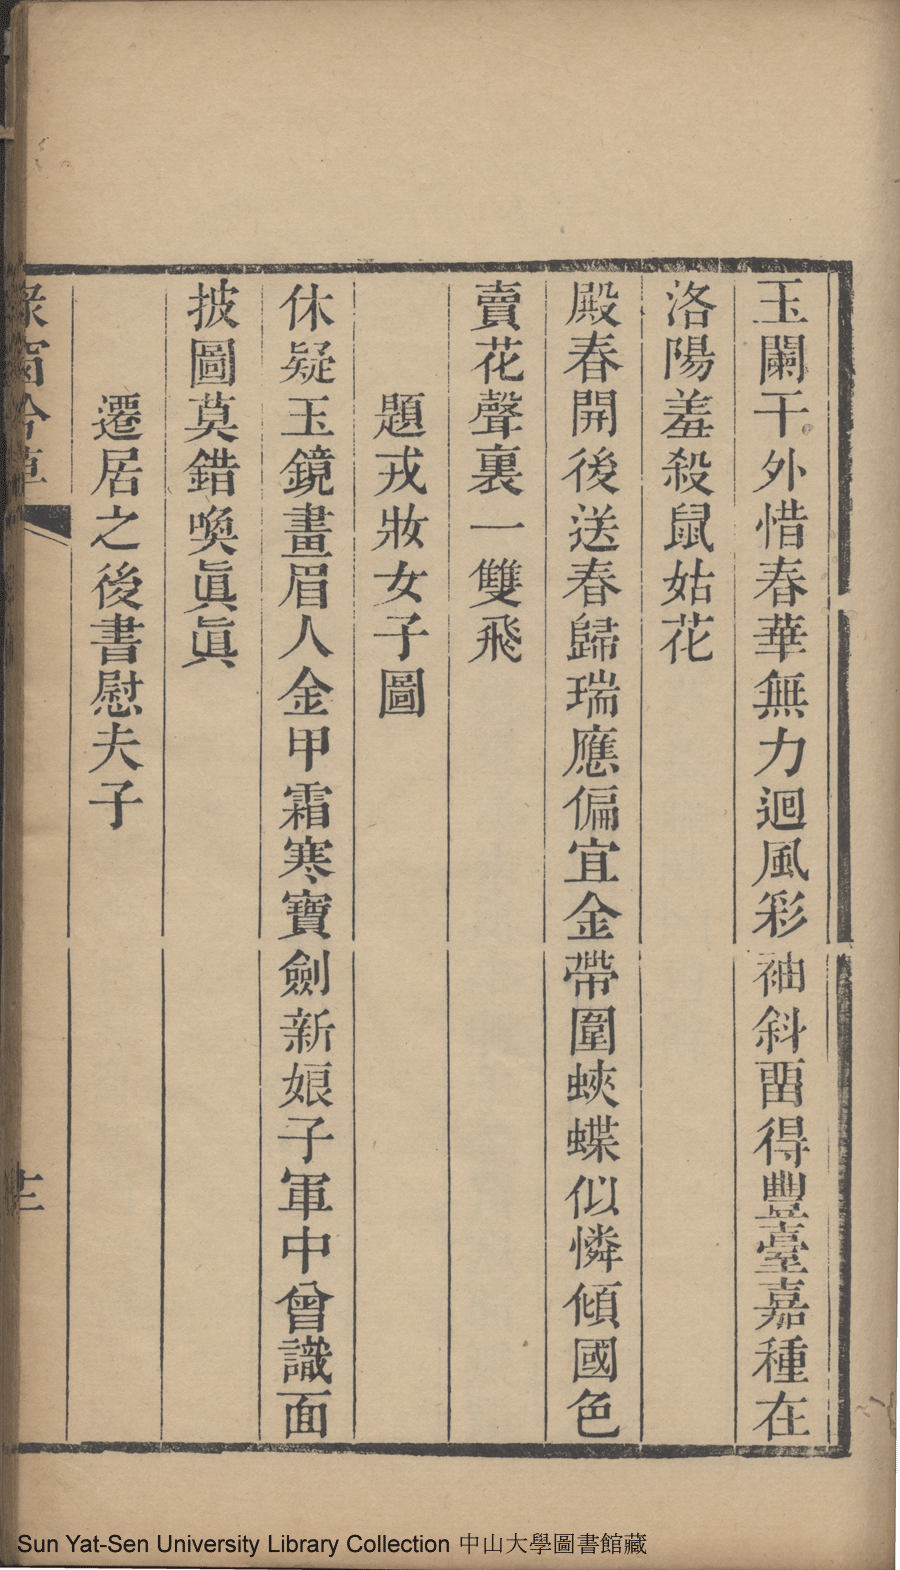 玉闌干外惜春華無力迴風彩袖斜畱得豐臺嘉種在
洛陽羞殺鼠姑花
殿春開後送春歸瑞應偏宜金帶圍蛺蝶似憐傾國色
賣花聲裏一雙飛
題戎妝女子圖
休疑玉鏡畫眉人金甲霜寒寶劍新娘子軍中曾識面
披圖莫錯喚眞眞
遷居之後書慰夫子
Sun Yat-Sen University Library Collection 中山大學圖書館藏